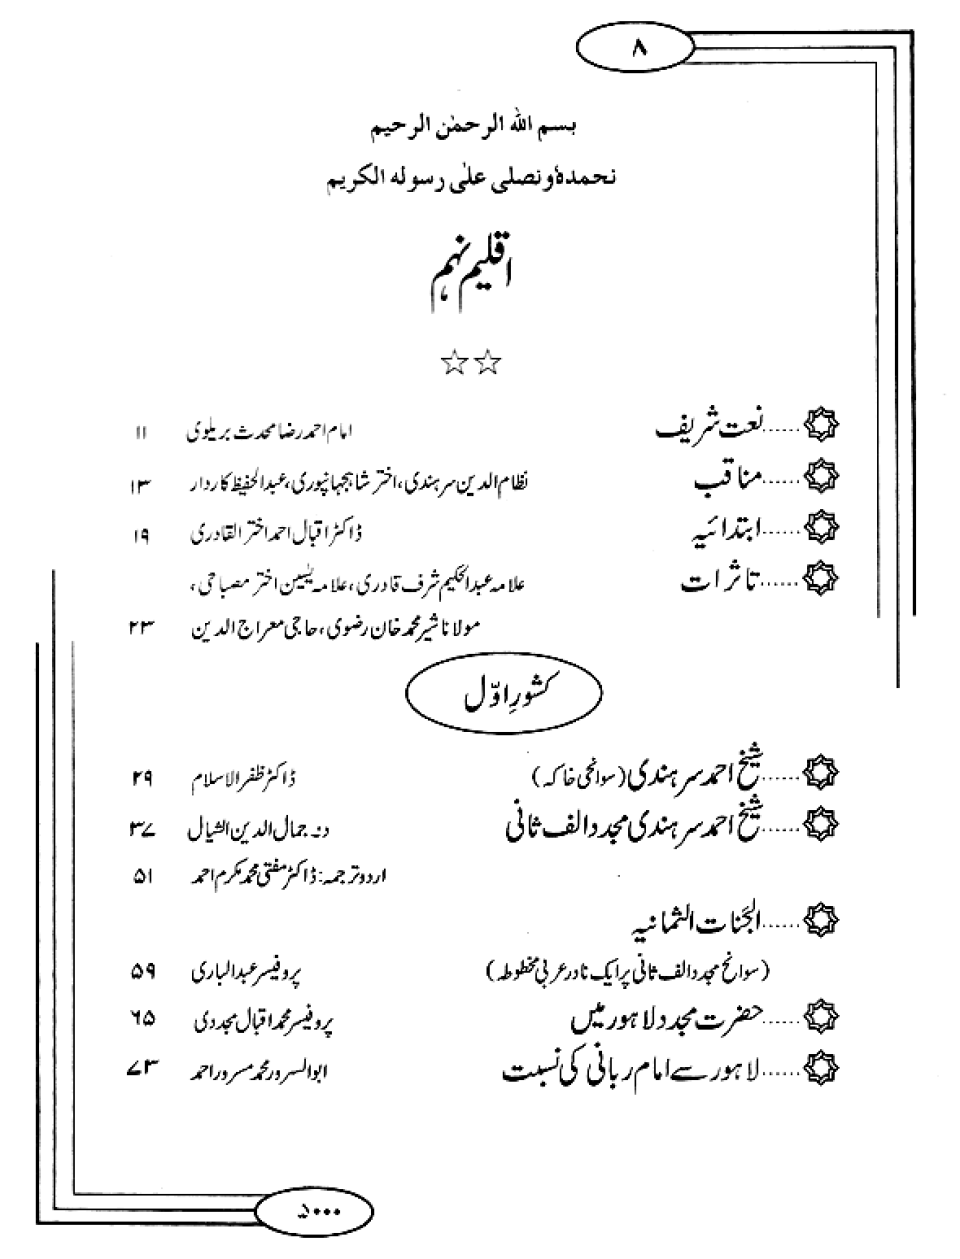 ۸
بسم اللہ الرحمٰن الرحیم
نحمدہٗ ونصلی علیٰ رسولہ الکریم
اقلیم نہم
☆☆
......نعت شریف امام احمد رضا محدث بریلوی ۱۱
......مناقب نظام الدین سرہندی، اختر شاہجہانپوری، عبدالحفیظ کاردار ۱۳
......ابتدائیہ ڈاکٹر اقبال احمد اختر القادری ۱۹
......تاثرات علامہ عبدالحکیم شرف قادری، علامہ یٰسین اختر مصباحی،
مولانا شیر محمد خان رضوی، حاجی معراج الدین ۲۳
کشورِ اوّل
......شیخ احمد سرہندی (سوانحی خاکہ) ڈاکٹر ظفر الاسلام ۲۹
......شیخ احمد سرہندی مجدد الف ثانی دنہ جمال الدین الشیال ۳۷
اردو ترجمہ: ڈاکٹر مفتی محمد مکرم احمد ۵۱
......الجنات الثمانیہ
(سوانح مجدد الف ثانی پر ایک نادر عربی مخطوطہ) پروفیسر عبدالباری ۵۹
......حضرت مجدد لاہور میں پروفیسر محمد اقبال مجددی ۶۵
......لاہور سے امام ربانی کی نسبت ابوالسرور محمد مسرور احمد ۷۳
۵۰۰۰